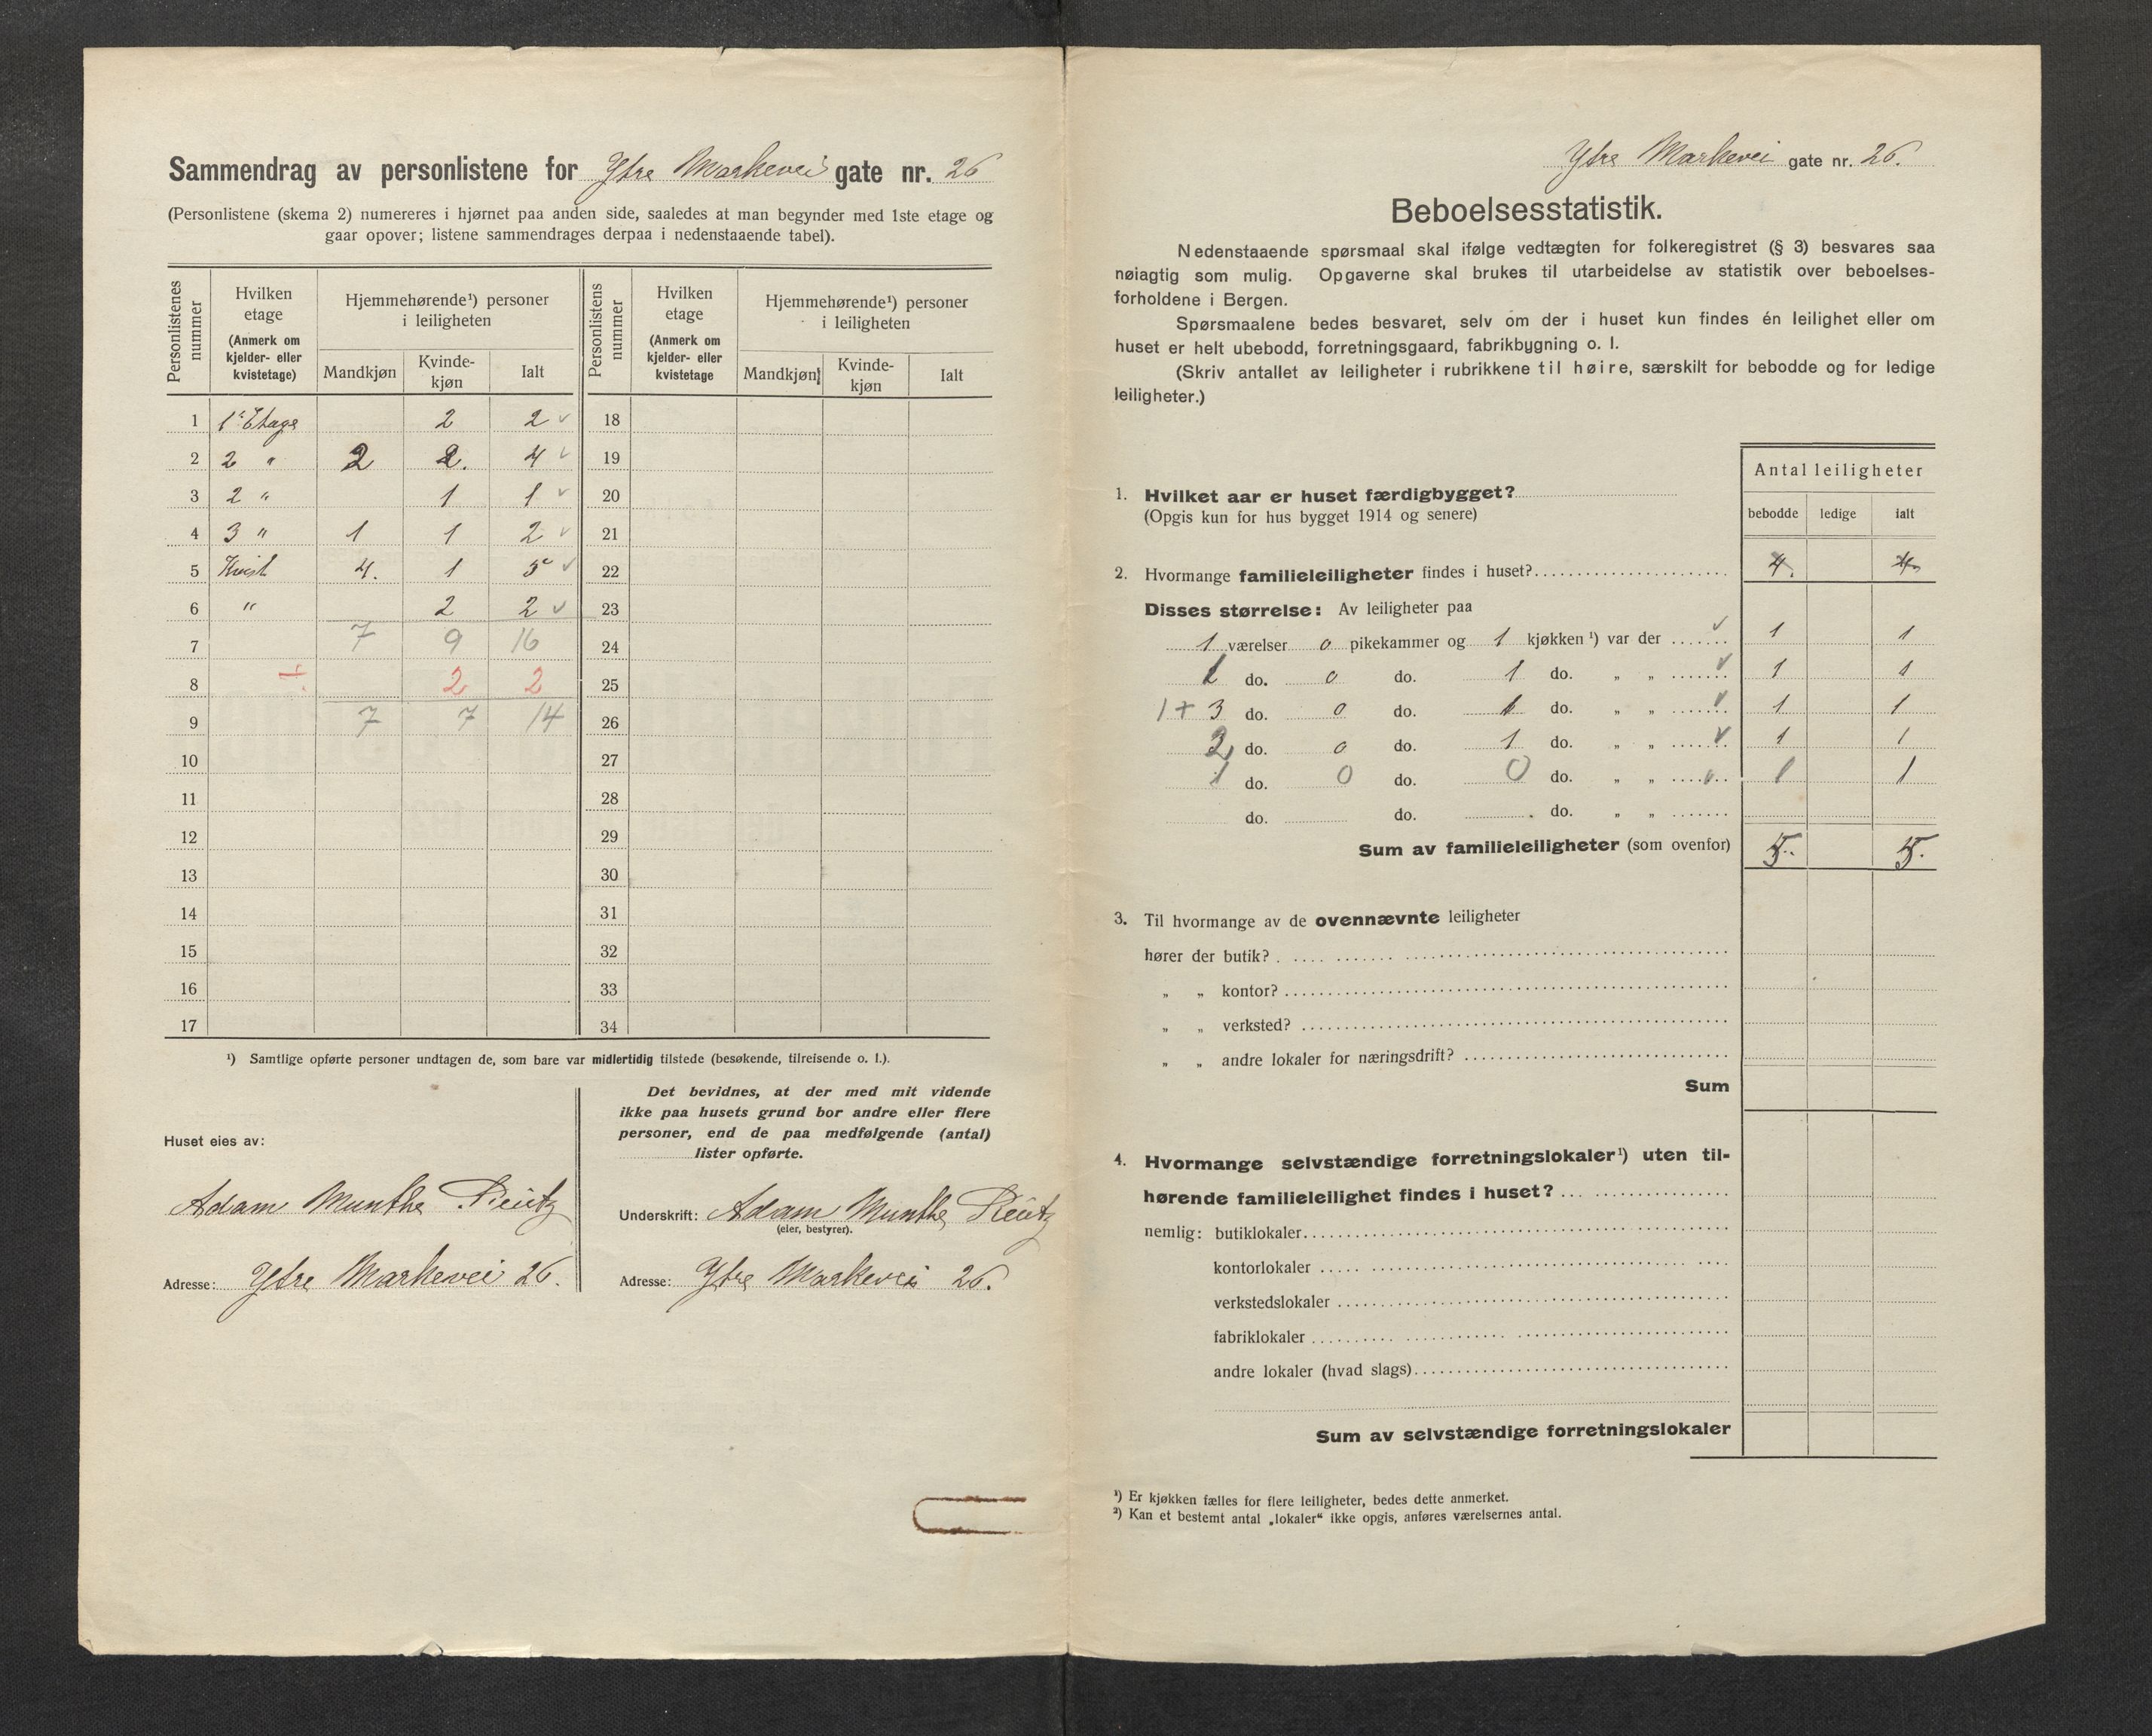 Sammendrag av personlistene for Ytre Markevei gate nr. 26
(Personlistene (skema 2) numereres i hjørnet paa anden side, saaledes at man begynder med 1ste etage og
gaar opover; listene sammendrages derpaa i nedenstaaende tabel).
Personlistenes nummer
Hvilken etage (Anmerk om kjelder- eller kvistetage)
Hjemmehørende¹) personer i leiligheten
Mandkjøn Kvinde-kjøn Ialt
Personlistens nummer
Hvilken etage (Anmerk om kjelder- eller kvistetage
Hjemmehørende¹) personer i leiligheten
Mandkjøn Kvinde-kjøn Ialt
1 1ste Etage 2 2 ✓ 18
2 2 " 2 2. 4 ✓ 19
3 2 " 1 1 ✓ 20
4 3 " 1 1 2 ✓ 21
5 Kvist 4. 1 5 ✓ 22
6 " 2 2 ✓ 23
7 7 9 16 24
8 ÷ 2 2 25
9 7 7 14 26
10 27
11 28
12 29
13 30
14 31
15 32
16 33
17 34
¹) Samtlige opførte personer undtagen de, som bare var midlertidig tilstede (besøkende, tilreisende o. l.).
Huset eies av:
Adam Munthe
Adresse: Ytre Markevei 26.
Det bevidnes, at der med mit vidende
ikke paa husets grund bor andre eller flere
personer, end de paa medfølgende (antal)
lister opførte.
Underskrift: Adam Munthe
(eier, bestyrer).
Adresse: Ytre Markevei 26.
Ytre Markevei gate nr. 26.
Beboelsesstatistik.
Nedenstaaende spørsmaal skal ifølge vedtægten for folkeregistret (§ 3) besvares saa
nøiagtig som mulig. Opgaverne skal brukes til utarbeidelse av statistik over beboelses-
forholdene i Bergen.
Spørsmaalene bedes besvaret, selv om der i huset kun findes én leilighet eller om
huset er helt ubebodd, forretningsgaard, fabrikbygning o. l.
(Skriv antallet av leiligheter i rubrikkene til høire, særskilt for bebodde og for ledige
leiligheter.)
Antal leiligheter
bebodde ledige ialt
1. Hvilket aar er huset færdigbygget?
(Opgis kun for hus bygget 1914 og senere)
2. Hvormange familieleiligheter findes i huset? 4. 4.
Disses størrelse: Av leiligheter paa
1 værelser 0 pikekammer og 1 kjøkken ¹) var der ✓ 1 1
1 do. 0 do. 1 do. " " ✓ 1 1
1 + 3 do. 0 do. 1 do. " " ✓ 1 1
2 do. 0 do. 1 do. " " ✓ 1 1
1 do. 0 do. 0 do. " " 1 1
do. do. do. " "
Sum av familieleiligheter (som ovenfor) 5. 5.
3. Til hvormange av de ovennævnte leiligheter
hører der butik?
" " kontor?
" " verksted?
" " andre lokaler for næringsdrift?
Sum
4. Hvormange selvstændige forretningslokaler¹) uten til-
hørende familieleilighet findes i huset?
nemlig: butiklokaler
kontorlokaler
verkstedslokaler
fabriklokaler
andre lokaler (hvad slags)
Sum av selvstændige forretningslokaler
¹) Er kjøkken fælles for flere leiligheter, bedes dette anmerket.
²) Kan et bestemt antal „lokaler“ ikke opgis, anføres værelsernes antal.